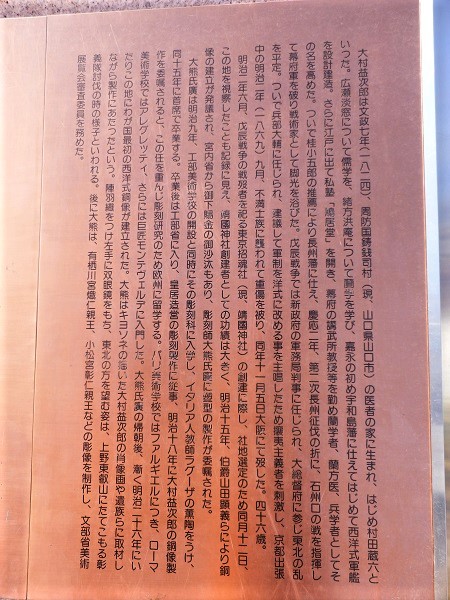 大村益次郎は文政七年(一八二四)、周防国鋳銭司村(現、山口県山口市)の医者の家に生まれ、はじめ村田蔵六と
いった。広瀬淡窓について儒学を、緒方洪庵について蘭学を学び、嘉永の初め宇和島藩に仕えてはじめて西洋式軍艦
を設計建造、さらに江戸に出て私塾「鳩居堂」を開き、幕府の講武所教授等を勤め蘭学者、蘭方医、兵学者としてそ
の名を高めた。ついで桂小五郎の推薦により長州藩に仕え、慶応二年、第二次長州征伐の折に、石州口の戦を指揮し
て幕府軍を破り戦術家として脚光を浴びた。戊辰戦争では新政府の軍務局判事に任じられ、大総督府に参じ東北の乱
を平定。ついで兵部大輔に任じられ、建議して軍制を洋式に改める事を主唱したため攘夷主義者を刺激し、京都出張
中の明治二年(一八六九)九月、不満士族に襲われて重傷を被り、同年十一月五日大阪にて歿した。四十六歳。
明治二年六月、戊辰戦争の戦歿者を祀る東京招魂社(現、靖國神社)の創建に際し、社地選定のため同月十二日、
この地を視察したことも記録に見え、靖國神社創建者としての功績は大きく、明治十五年、伯爵山田顕義らにより銅
像の建立が発議され、宮内省から御下賜金の御沙汰もあり、彫刻師大熊氏廣に造型の製作が委嘱された。
大熊氏廣は明治九年、工部美術学校の開設と同時にその彫刻科に入学し、イタリア人教師ラグーザの薫陶をうけ、
同十五年に首席で卒業する。卒業後は工部省に入り、皇居造営の彫刻製作に従事、明治十八年に大村益次郎の銅像製
作を委嘱されると、この任を重んじ彫刻研究のため欧州に留学する。パリ美術学校ではファルギエルにつき、ローマ
美術学校ではアレグレッティ、さらには巨匠モンテヴェルデに入門した。大熊氏廣の帰朝後、漸く明治二十六年にい
たりこの地にわが国最初の西洋式銅像が建立された。大熊はキヨソネの描いた大村益次郎の肖像画や遺族らに取材し
ながら製作にあたったという。陣羽織をつけ左手に双眼鏡をもち、東北の方を望む姿は、上野東叡山にたてこもる彰
義隊討伐の時の様子といわれる。後に大熊は、有栖川宮熾仁親王、小松宮彰仁親王などの彫像を制作し、文部省美術
展覧会審査委員を務めた。